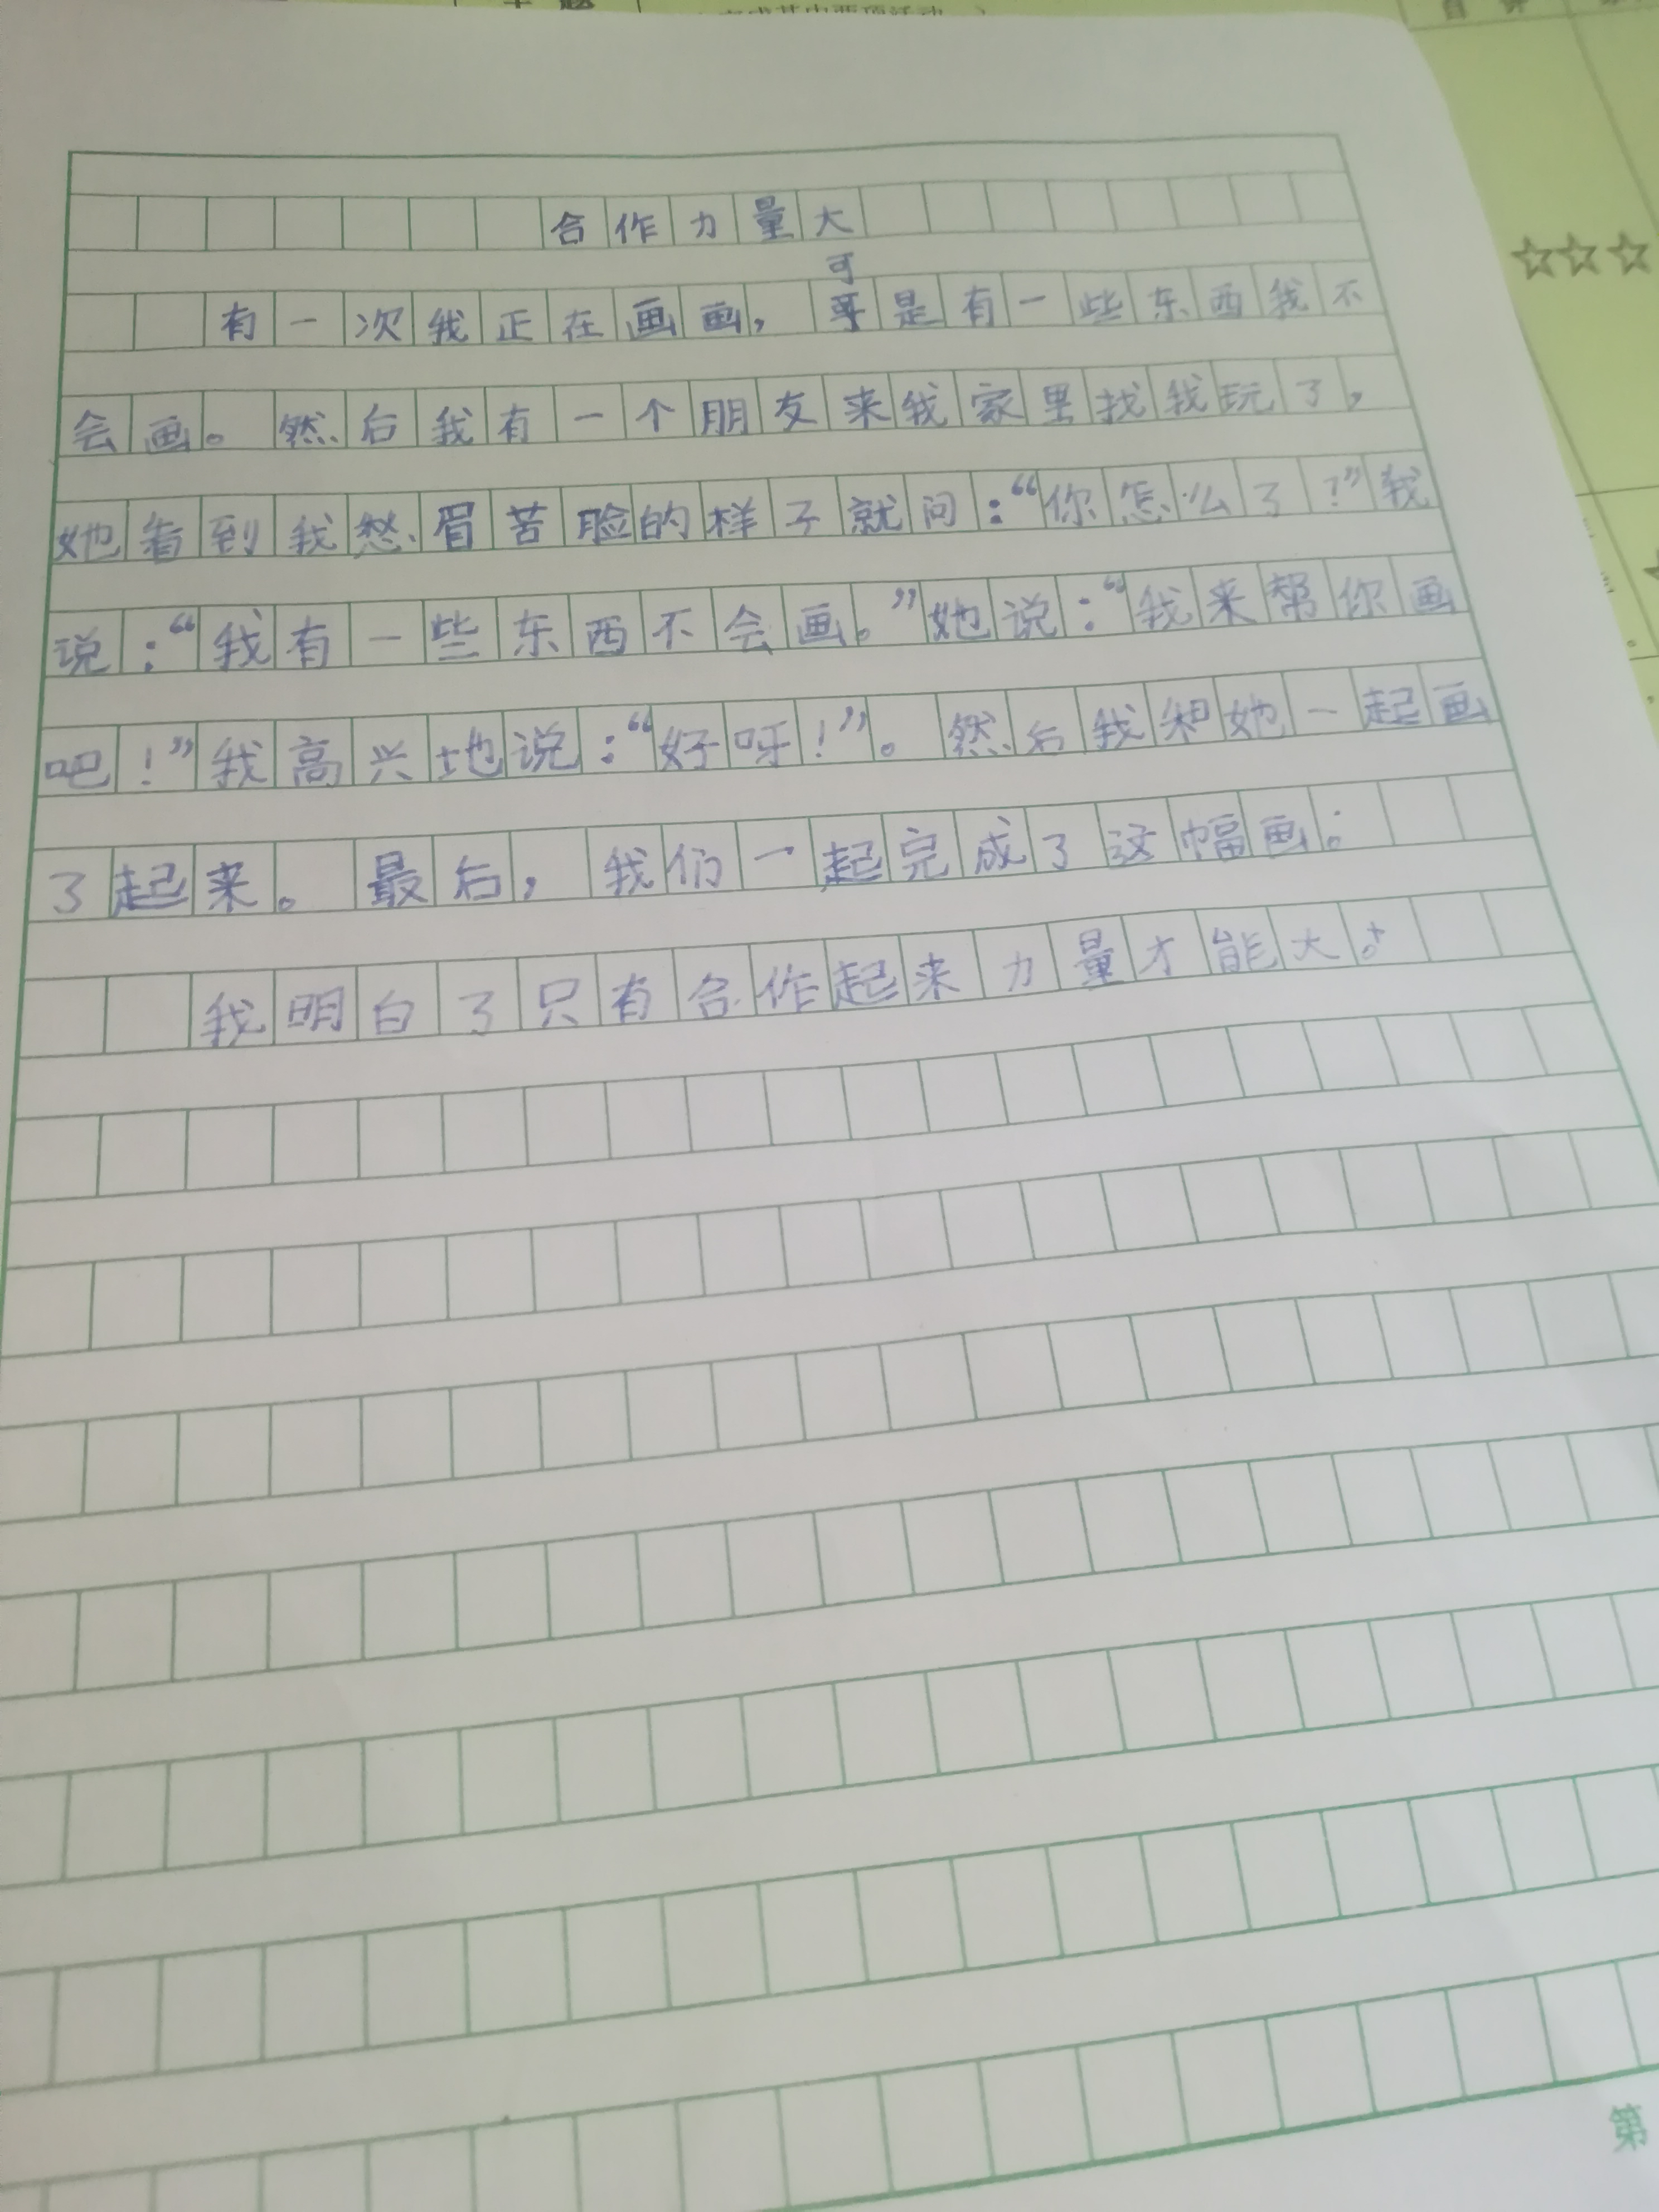 合作力量大
可
有一次我正在画画，哥是有一些东西我不
会画。然后我有一个朋友来我家里找我玩了，
她看到我愁眉苦脸的样子就问：“你怎么了？”我
说：“我有一些东西不会画。”她说：“我来帮你画
吧！”我高兴地说：“好呀！”。然后我和她一起画
了起来。最后，我们一起完成了这幅画。
我明白了只有合作起来力量才能大。
第